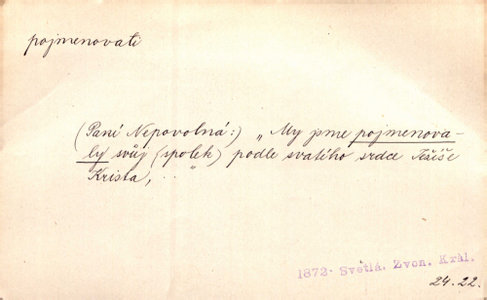 pojmenovati
(Paní Nepovolná:) „My jsme pojmenova-
ly svůj (spolek) podle svatího srdce Ježíše
Krista, . . "
1872. Světlá. Zvon. Král.
24.22.